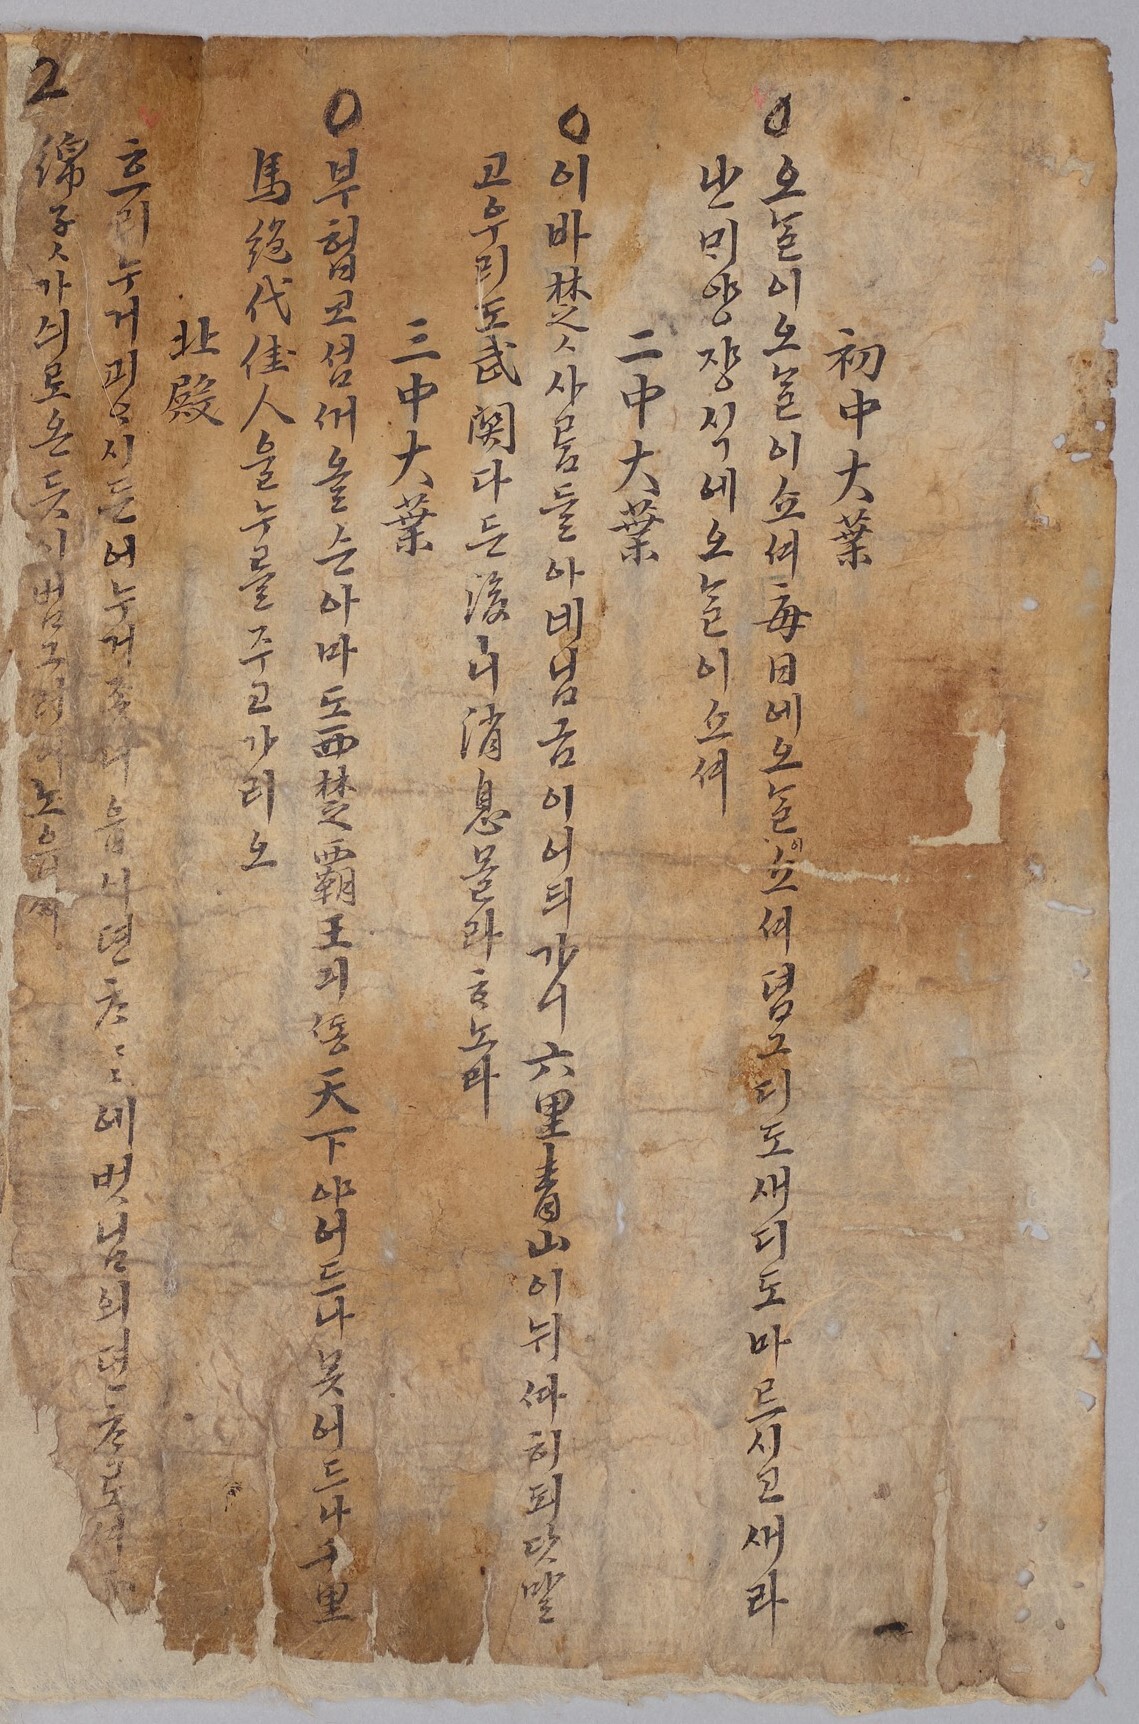 初中大葉
오ᄂᆞᆯ이오ᄂᆞᆯ이쇼셔每日에오ᄂᆞᆯ이쇼셔뎜그디도새디도마르시고새라
난ᄆᆡ양쟝식에오ᄂᆞᆯ이쇼셔
二中大葉
이바楚ㅅ사ᄅᆞᆷ들아네님금이어듸가니六里靑山이뉘ᄯᅡ히되닷말
고우리도武關다든後니消息몰라ᄒᆞ노라
三中大葉
부헙고섬ᄭᅥ올슨아마도西楚覇王긔ᄯᅩᆼ天下야어드나못어드나千里
馬絶代佳人을누를주고가리오
北殿
흐리누거괴ᄋᆞ시든어누거좃니읍시뎐ᄎᆞ뎐ᄎᆞ에벗님의뎐ᄎᆞ로셔
2
綿子ㅅ가싀로온듯시범그려이노읍셔